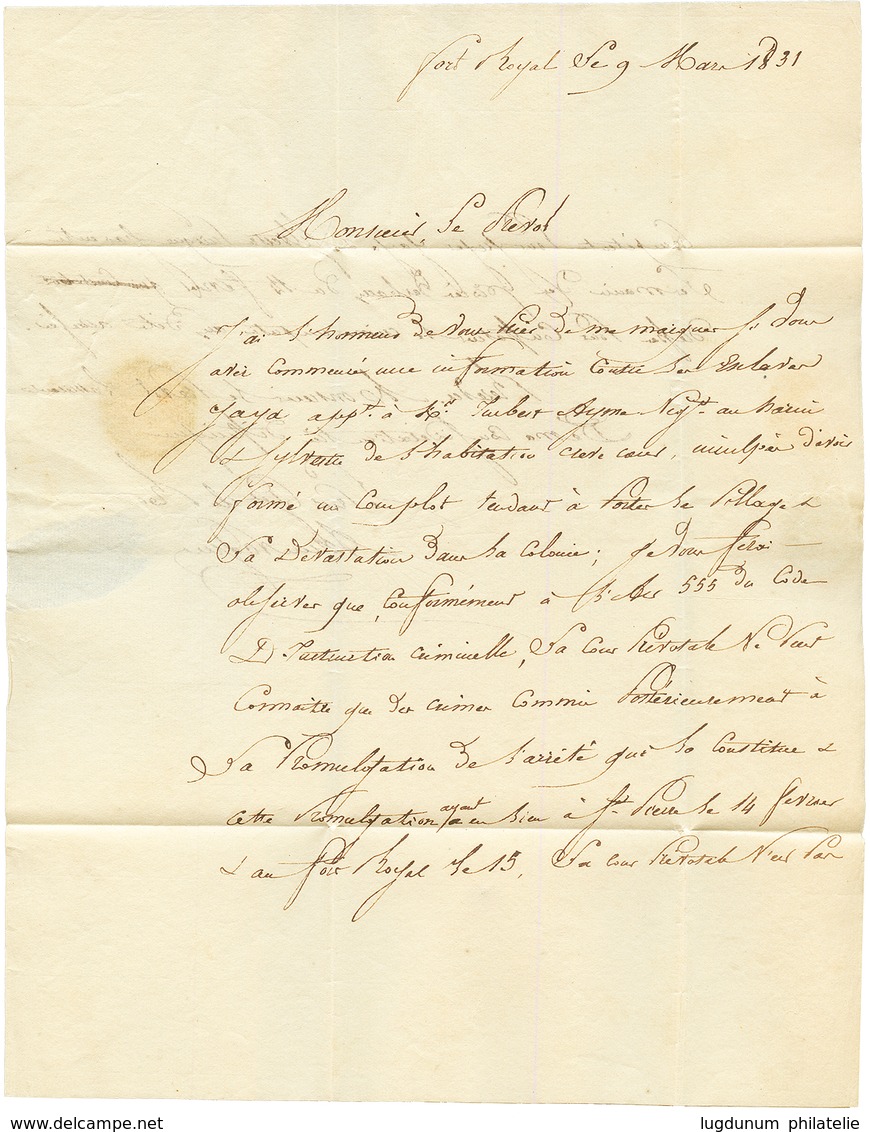 Fort Royal le 9 Mars 1831
Monsieur le Prevot
J'ai l'honneur de vous prier de me marquer si vous
avez commencé une information contre les Esclaves
appt. à Mr. Imbert Ayme Negt. au marin
& Sylvestre de l'habitation cœur, inculpés d'avoir
formé un complot tendant à porter le pillage &
la Devastation dans la colonie; je vous ferai
observer que conformément à l'Art 555 du Code
D'Instruction criminelle, la cour Prevotale ne peut
connaitre que des crimes commis postérieurement à
la Promulgation de l'arrêté qui la constitue &
cette Promulgation ayant eu lieu à St. Pierre le 14 fevrier
& au fort Royal le 15, la cour Prevotale n'est pas
lugdunum philatelie